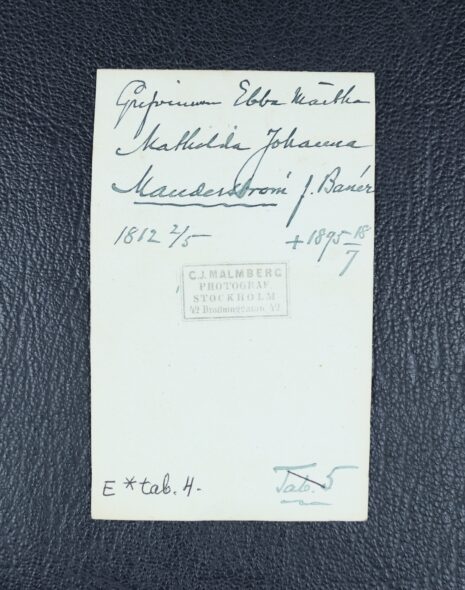 Grefvinnan Ebba Märtha
Mathilda Johanna
Manderström f. Banér
1812 2/5 + 1895 18/7
C.J. MALMBERG
PHOTOGRAF
STOCKHOLM
42 Drottninggatan. 42
E * tab. 4.
Tab. 5